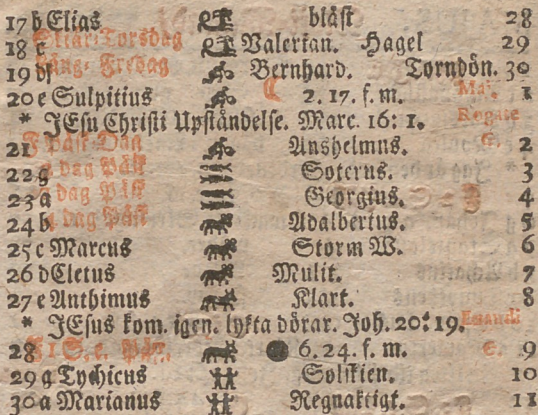 17 b Elias blåst 28
18 c Skiär-Torsdag Valerian. Hagel 29
19 d Lång-Fredag Bernhard. Torndön. 30
20 e Sulpitius ☾ 2. 17. f. m. Maj. 1
* JEsu Christi Upståndelse. Marc. 16: 1. Rogate
21 Påsk-Dag Anshelmus. S. 2
22 g dag Påsk Soterus. 3
23 a dag Påsk Georgius. 4
24 b dag Påsk Adalbertus. 5
25 c Marcus Storm W. 6
26 d Cletus Mulit. 7
27 e Anthimus Klart. 8
* JEsus kom. igen. lykta dörar. Joh. 20: 19. Exaudi
28 1 S. e. Pås. ● 6. 24. f. m. S. 9
29 g Tychicus Solskien. 10
30 a Marianus Regnaktigt. 11